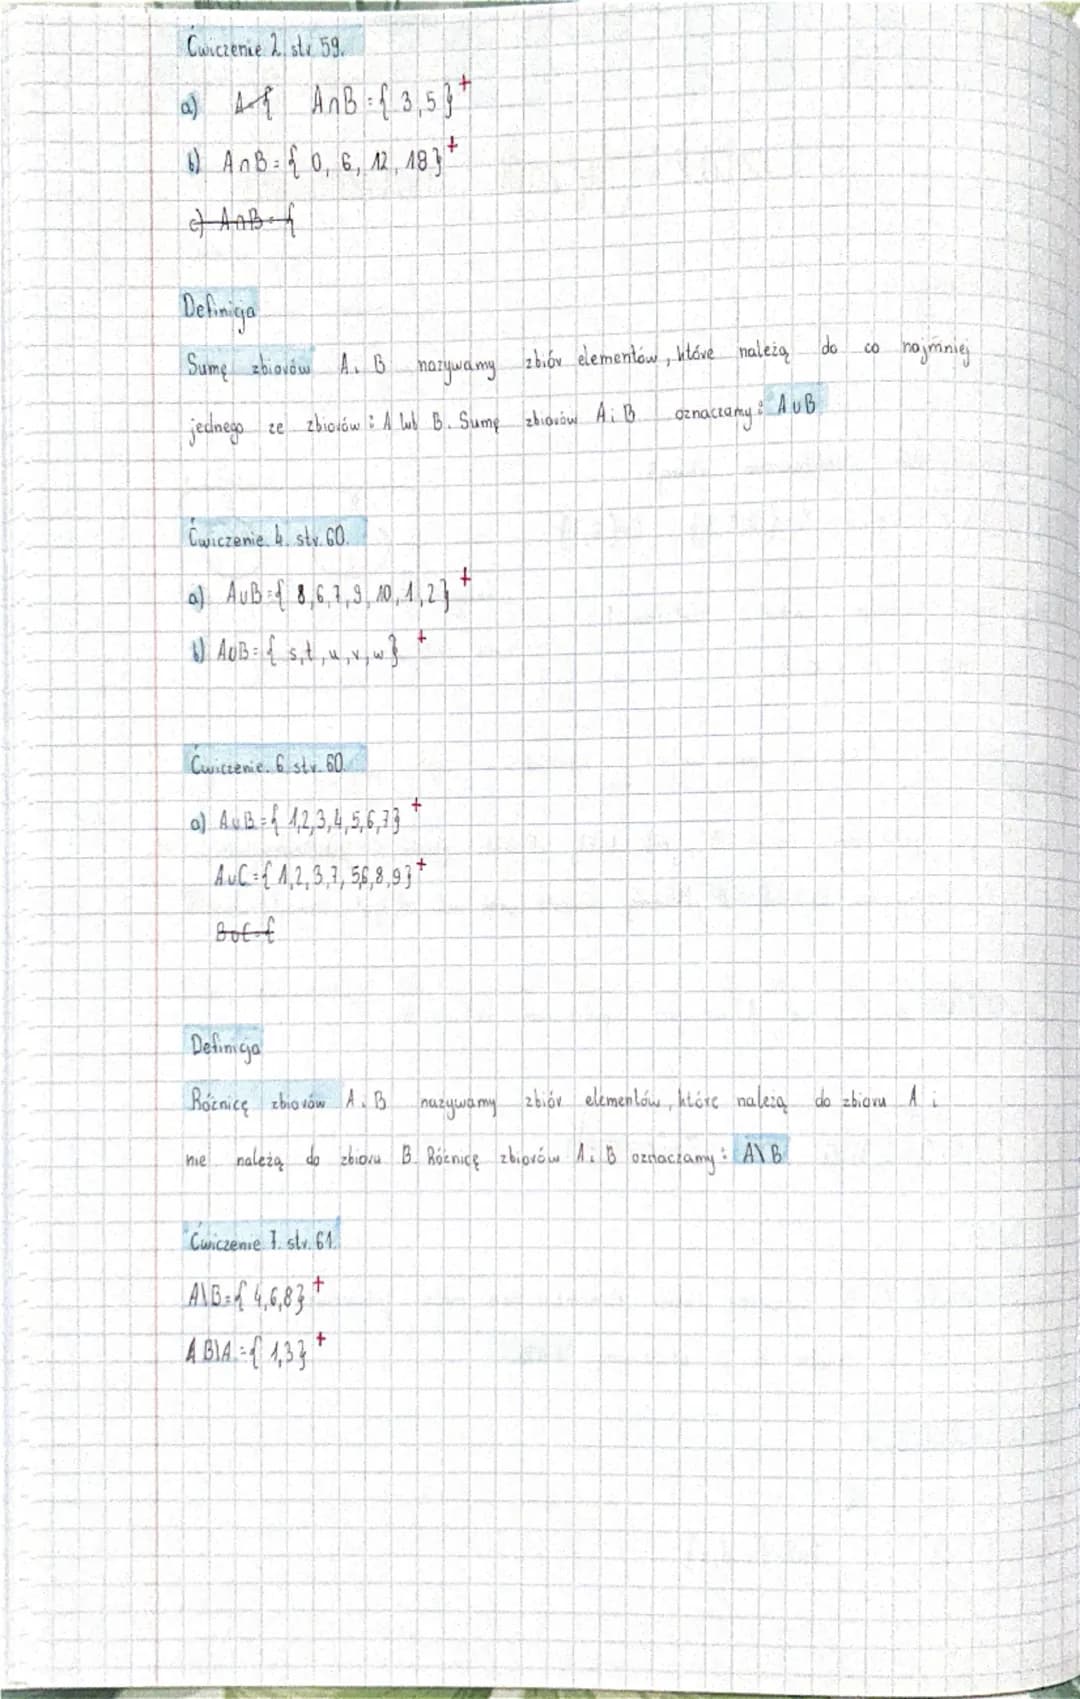 Ćwiczenie 2. str 59.
a) A={ A∩B={3,5} +
b) A∩B={0, 6, 12, 18} +
c) A∩B={
Definicja
Sumę zbiorów A i B nazywamy zbiór elementów, które należą do co najmniej
jednego ze zbiorów: A lub B. Sumę zbiorów A i B oznaczamy: A∪B
Ćwiczenie. 4. str. 60.
a) A∪B={8,6,7,9,10,1,2} +
b) A∪B={s,t,u,v,w} +
Ćwiczenie. 6. str. 60.
a) A∪B={1,2,3,4,5,6,7} +
A∪C={1,2,3,7,5,6,8,9} +
B∪C={
Definicja
Różnicę zbiorów A i B nazywamy zbiór elementów, które należą do zbioru A i
nie należą do zbioru B. Różnicę zbiorów A i B oznaczamy: A\B
Ćwiczenie 7. str. 61.
A\B={4,6,8} +
A B\A={1,3} +